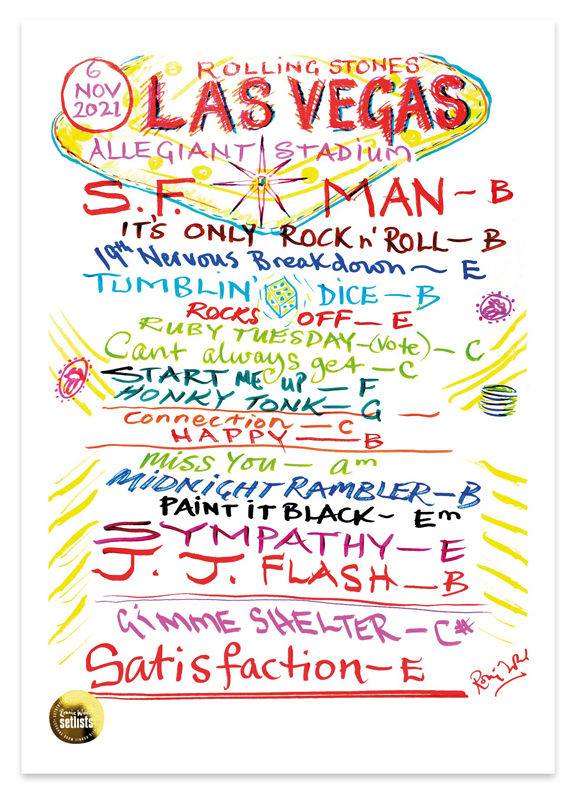 6
NOV
2021
ROLLING STONES
LAS VEGAS
ALLEGIANT STADIUM
S.F. MAN – B
IT'S ONLY ROCK n' ROLL – B
19th Nervous Breakdown – E
TUMBLIN' DICE – B
ROCKS OFF – E
RUBY TUESDAY – (Vote) – C
Cant always get – C
START ME UP – F
HONKY TONK – G
Connection – C
HAPPY – B
MISS YOU – am
MIDNIGHT RAMBLER – B
PAINT IT BLACK – Em
SYMPATHY – E
J. J. FLASH – B
GIMME SHELTER – C#
Satisfaction – E
Ronnie Wood
setlists